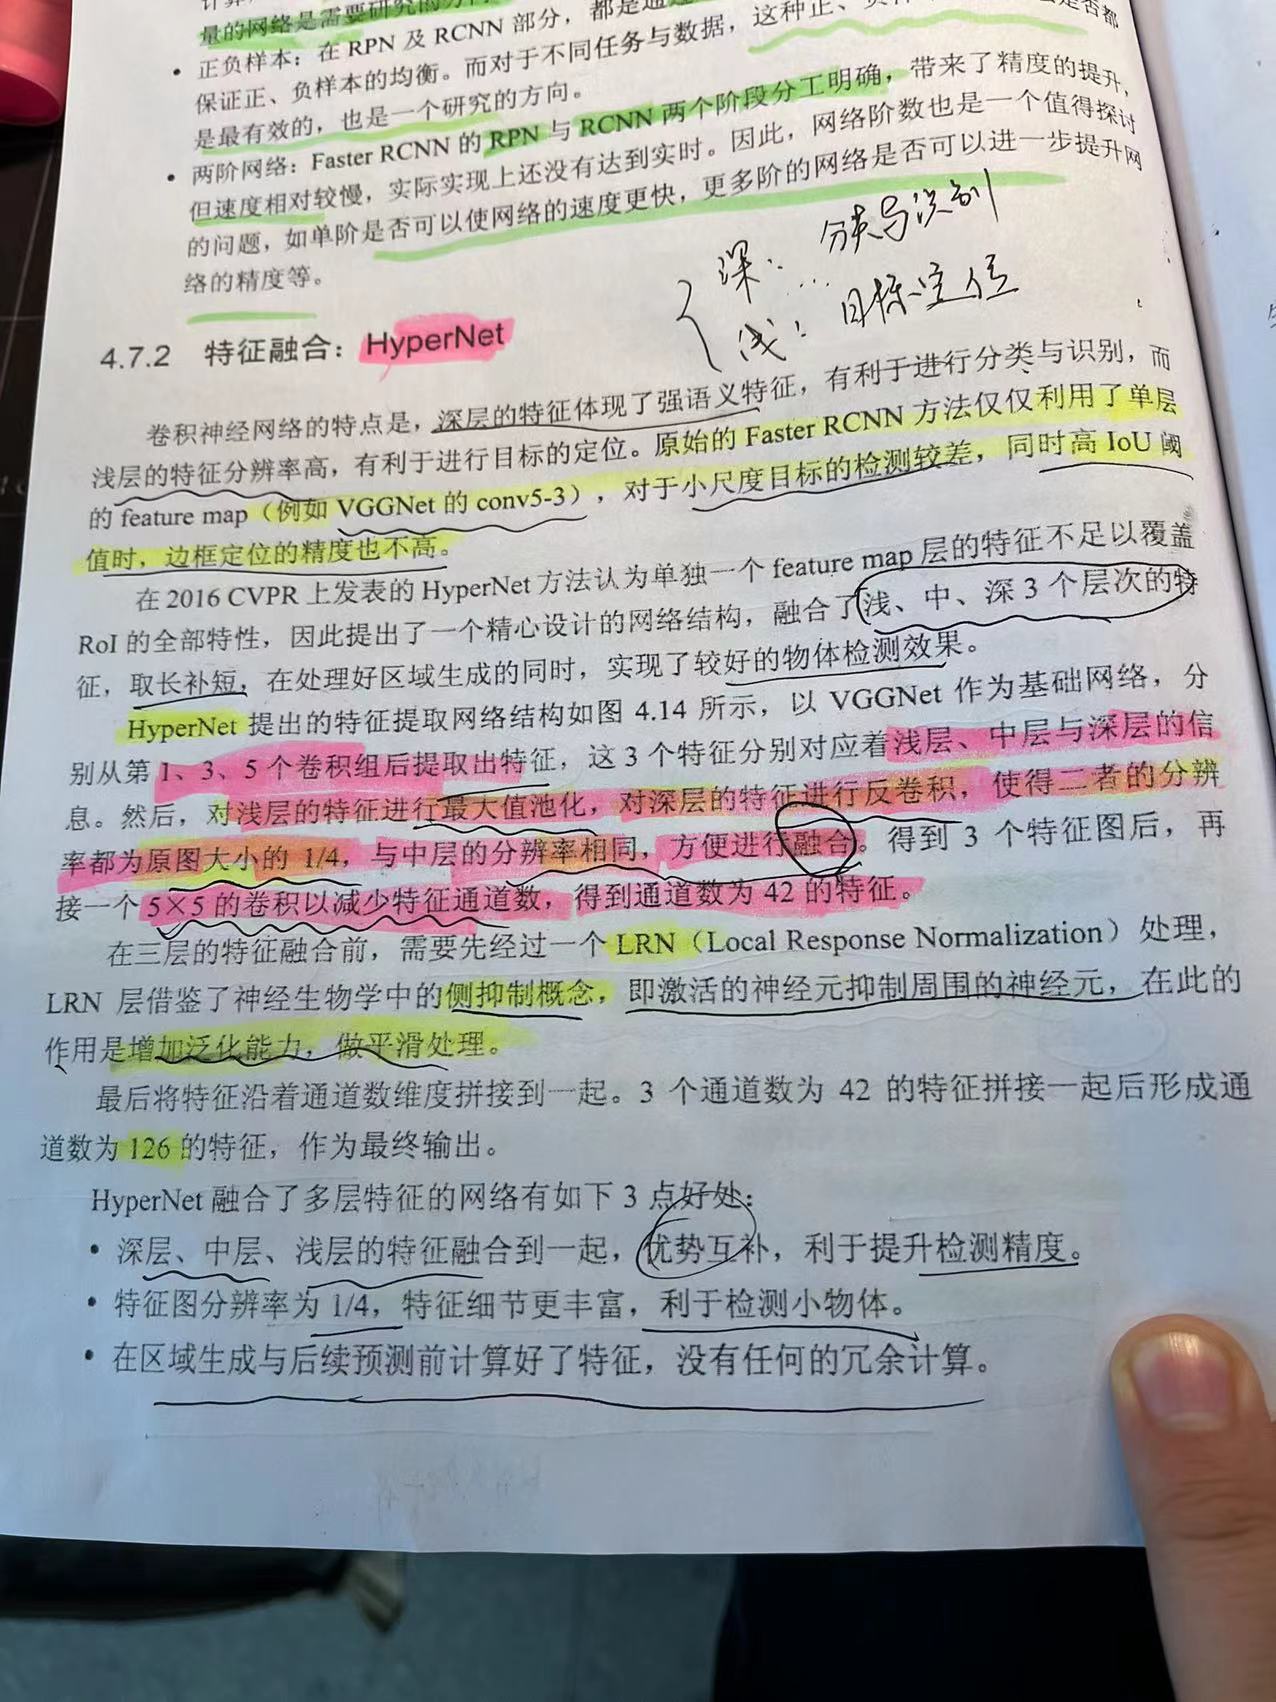 量的网络是需要研究的方
• 正负样本：在 RPN 及 RCNN 部分，都是通过
保证正、负样本的均衡。而对于不同任务与数据，这种正、负样 是否都
是最有效的，也是一个研究的方向。
• 两阶网络：Faster RCNN 的 RPN 与 RCNN 两个阶段分工明确，带来了精度的提升，
但速度相对较慢，实际实现上还没有达到实时。因此，网络阶数也是一个值得探讨
的问题，如单阶是否可以使网络的速度更快，更多阶的网络是否可以进一步提升网
络的精度等。
深： 分类与识别
浅： 目标定位
4.7.2 特征融合：HyperNet
卷积神经网络的特点是，深层的特征体现了强语义特征，有利于进行分类与识别，而
浅层的特征分辨率高，有利于进行目标的定位。原始的 Faster RCNN 方法仅仅利用了单层
的 feature map（例如 VGGNet 的 conv5-3），对于小尺度目标的检测较差，同时高 IoU 阈
值时，边框定位的精度也不高。
在 2016 CVPR 上发表的 HyperNet 方法认为单独一个 feature map 层的特征不足以覆盖
RoI 的全部特性，因此提出了一个精心设计的网络结构，融合了浅、中、深 3 个层次的特
征，取长补短，在处理好区域生成的同时，实现了较好的物体检测效果。
HyperNet 提出的特征提取网络结构如图 4.14 所示，以 VGGNet 作为基础网络，分
别从第 1、3、5 个卷积组后提取出特征，这 3 个特征分别对应着浅层、中层与深层的信
息。然后，对浅层的特征进行最大值池化，对深层的特征进行反卷积，使得二者的分辨
率都为原图大小的 1/4，与中层的分辨率相同，方便进行融合。得到 3 个特征图后，再
接一个 5×5 的卷积以减少特征通道数，得到通道数为 42 的特征。
在三层的特征融合前，需要先经过一个 LRN（Local Response Normalization）处理，
LRN 层借鉴了神经生物学中的侧抑制概念，即激活的神经元抑制周围的神经元，在此的
作用是增加泛化能力，做平滑处理。
最后将特征沿着通道数维度拼接到一起。3 个通道数为 42 的特征拼接一起后形成通
道数为 126 的特征，作为最终输出。
HyperNet 融合了多层特征的网络有如下 3 点好处：
• 深层、中层、浅层的特征融合到一起，优势互补，利于提升检测精度。
• 特征图分辨率为 1/4，特征细节更丰富，利于检测小物体。
• 在区域生成与后续预测前计算好了特征，没有任何的冗余计算。